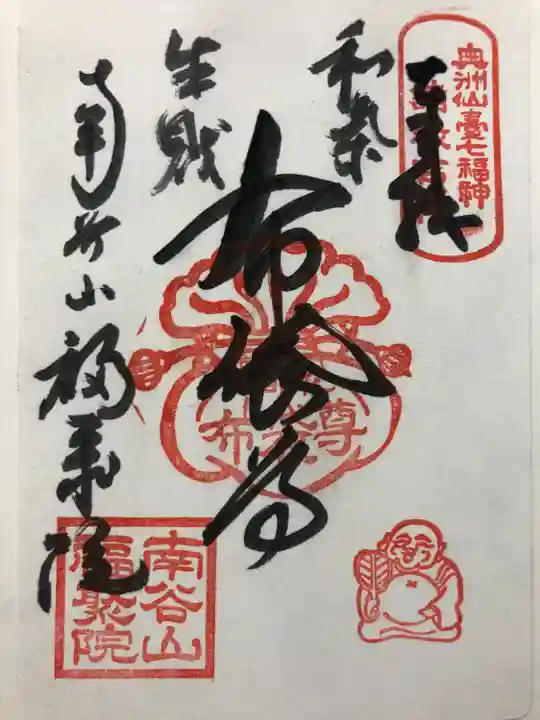 奥州仙臺七福神
奉拝
和楽
布袋尊
生財
布袋尊
南谷山福聚院
南谷山
福聚院